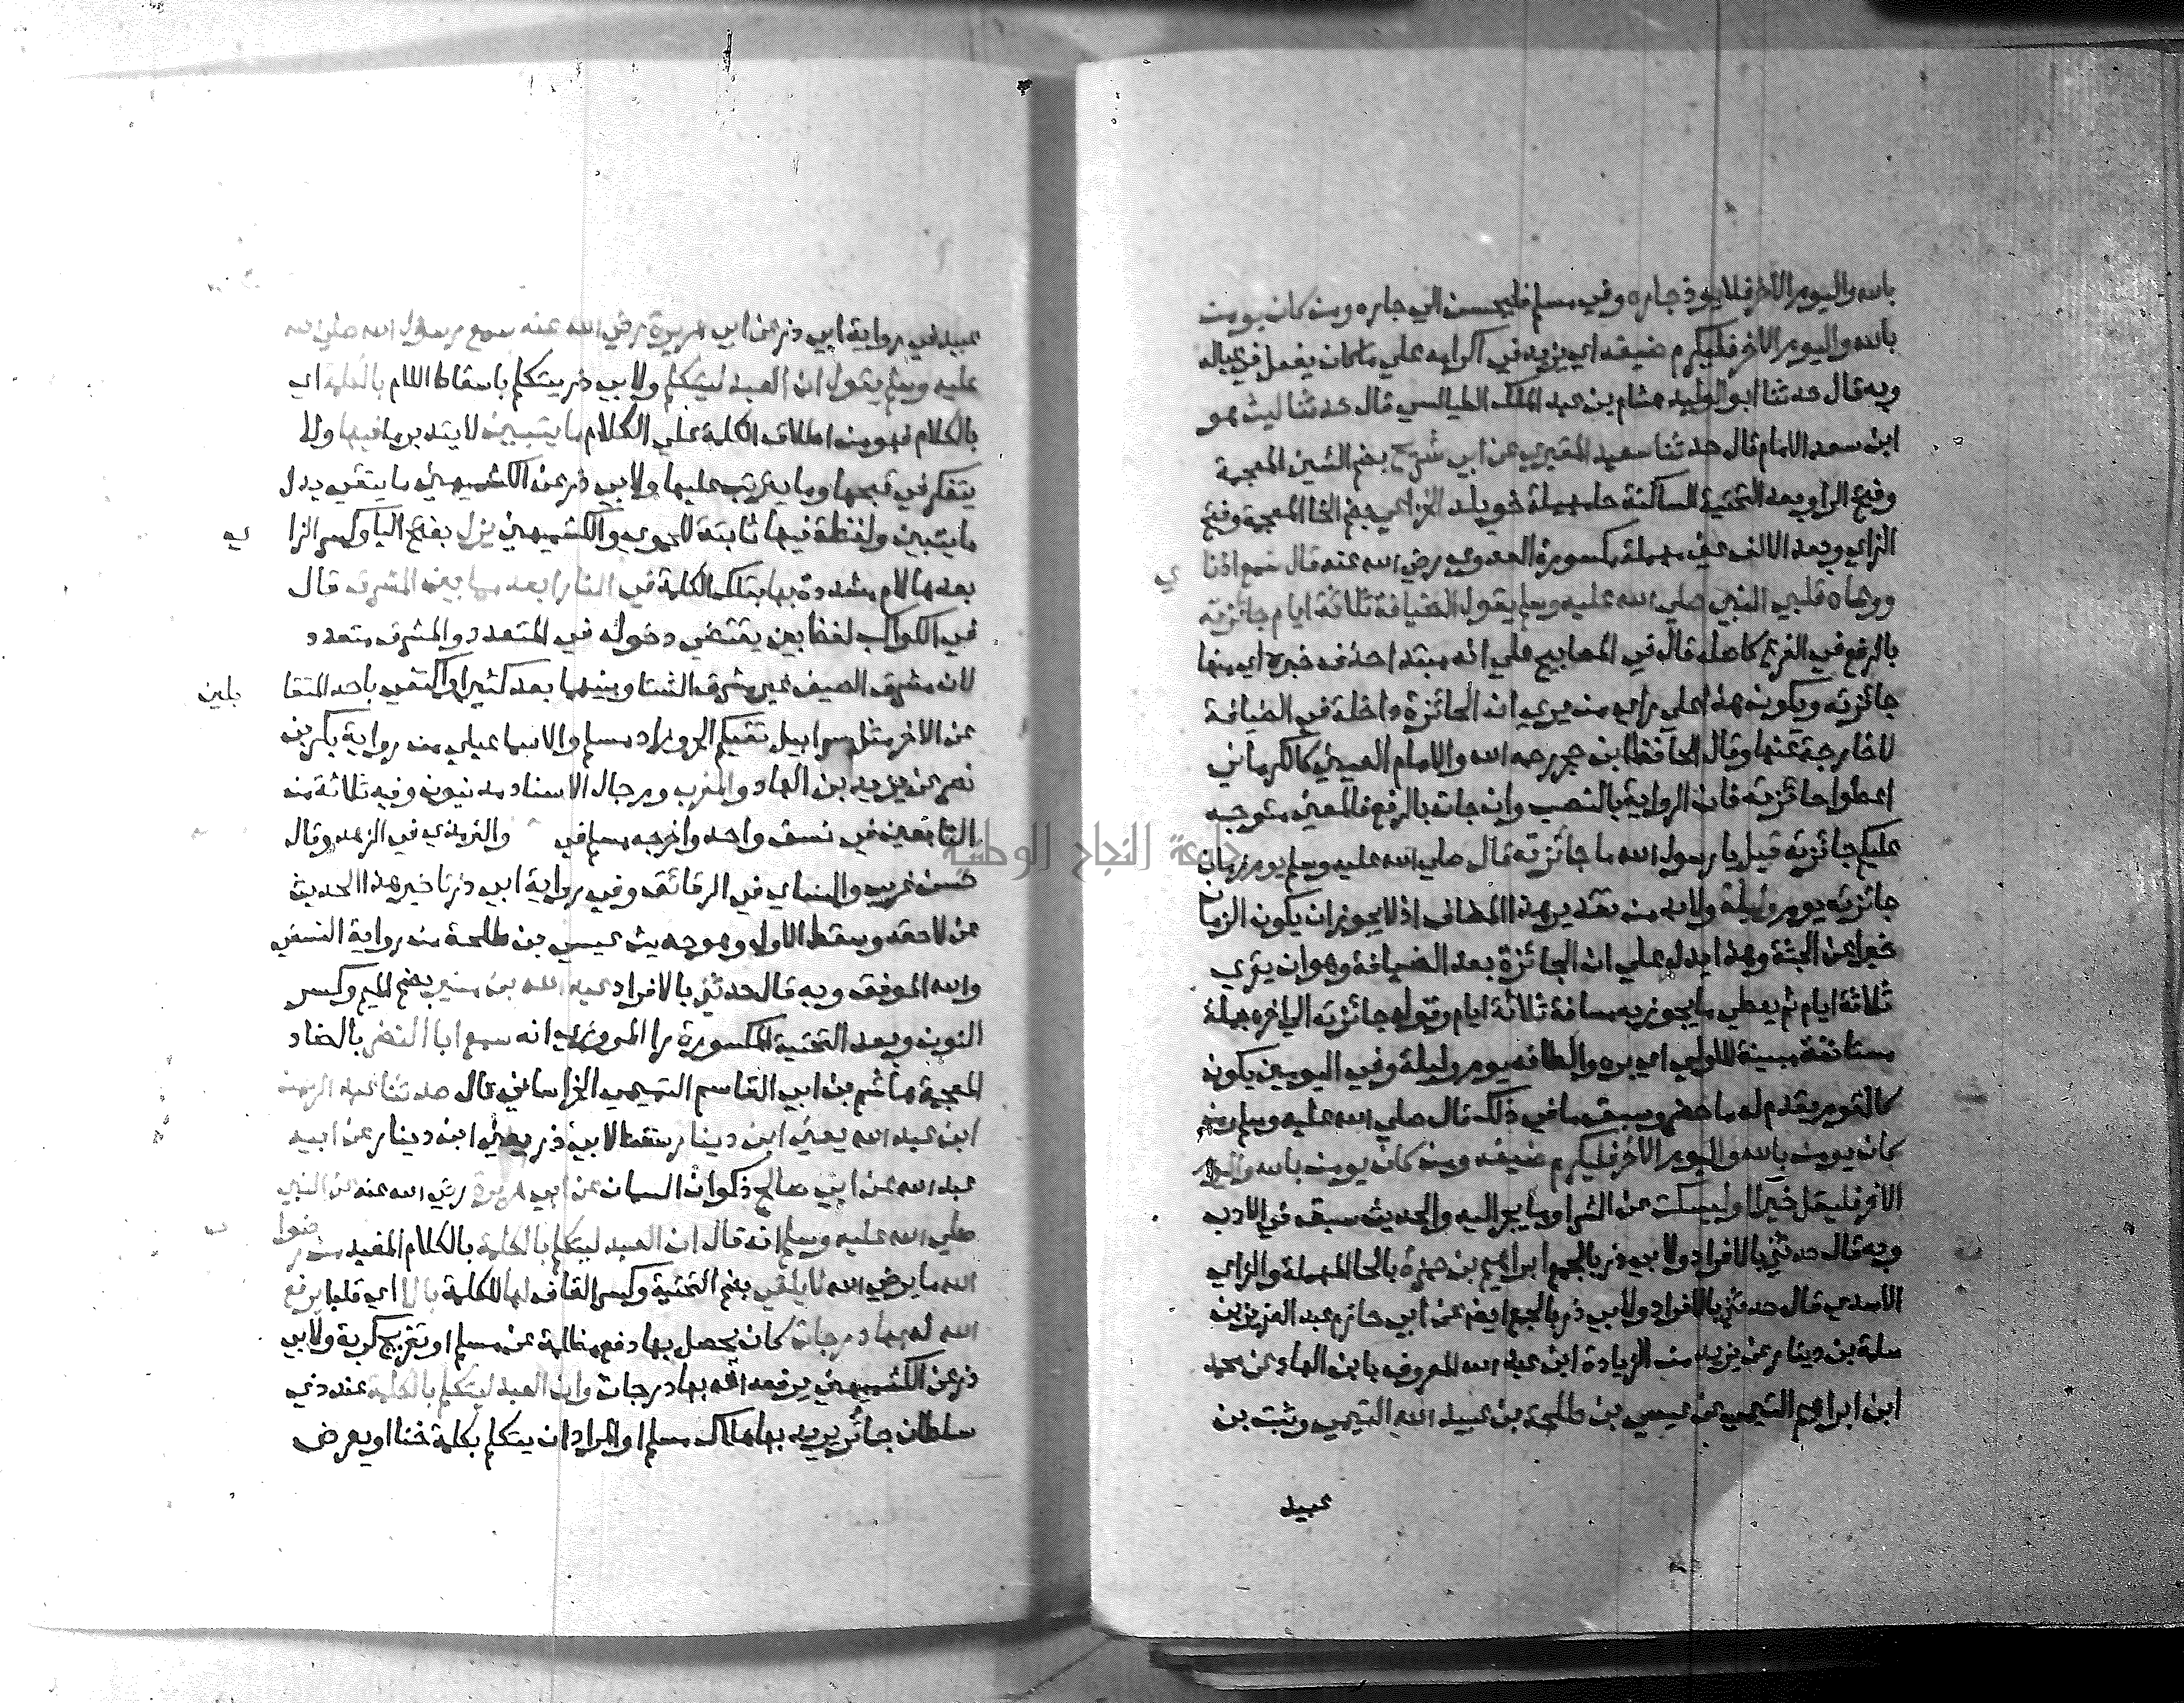 بالله واليوم الاخر فلا يوذ جاره وفي مسلم فليحسن الي جاره ومن كان يومن
بالله واليوم الاخر فليكرم ضيفه اي يزيد في اكرامه علي ما كان يفعل في عياله
وبه قال حدثنا ابو الوليد هشام بن عبد الملك الطيالسي قال حدثنا ليث هو
ابن سعد الامام قال حدثنا سعيد المقبري عن ابي شريح بضم الشين المعجمة
وفتح الرا وبعد التحتية الساكنة حا مهملة خويلد الخزاعي بضم الخا المعجمة وفتح
الزاي وبعد الالف عين مهملة مكسورة العدوي رضي الله عنه قال سمع اذنا
ي
ووعاه قلبي النبي صلي الله عليه وسلم يقول الضيافة ثلاثة ايام جائزته
بالرفع في الفرع كاصله قال في المصابيح علي انه مبتدا حذف خبره اي منها
جائزته ويكون هذا علي راي من يري ان الجائزة داخلة في الضيافة
لا خارجة عنها وقال الحافظ ابن حجر رحمه الله والامام العيني كالكرماني
اعطوا جائزته فان الرواية بالنصب وان جات بالرفع فالمعني متوجبه
عليكم جائزته قيل يا رسول الله ما جائزته قال صلي الله عليه وسلم يوم زمان
جائزته يوم وليلة ولابد من تقدير هذا المضاف اذ لا يجوز ان يكون الزمان
خبرا عن الجثة وهذا يدل علي ان الجائزة بعد الضيافة وهو ان يقري
ثلاثة ايام ثم يعطي ما يجوز به مسافة ثلاثة ايام وقوله جائزته الي اخره جملة
مستانفة مبينة للاولي اي بره والطافه يوم وليلة وفي اليومين يكون
كالقوم يقدم له ما حضر وسبق ما في ذلك قال صلي الله عليه وسلم ومن
كان يومن بالله واليوم الاخر فليكرم ضيفه ومن كان يومن بالله واليوم
الاخر فليقل خيرا او ليسكت عن الشر وما يجر اليه والحديث سبق في الادب
وبه قال حدثني بالافراد ولابي ذر بالجمع ابراهيم بن حمزة بالحا المهملة والزاي
الاسدي قال حدثني بالافراد ولابي ذر بالجمع ايضا عن ابي حازم عبد العزيز بن
سلمة بن دينار عن يزيد من الزيادة ابن عبد الله المعروف بابن الهاد عن محمد
ابن ابراهيم التيمي عن عيسي بن طلحة بن عبيد الله التيمي وثبت بن
عبيد
عبيد في رواية ابي ذر عن ابي هريرة رضي الله عنه سمع رسول الله صلي الله
عليه وسلم يقول ان العبد ليتكلم ولابي ذر يتكلم باسقاط اللام بالكلمة اي
بالكلام فهو من اطلاق الكلمة علي الكلام ما يتبين لا يتدبر ما فيها ولا
يتفكر في قبحها وما يترتب عليها ولابي ذر عن الكشميهني ما يتقي بدل
ما يتبين ولفظة فيها ثابتة للحموي والكشميهني يزل بفتح اليا وكسر الزا
ي
بعدها لام مشددة بها بتلك الكلمة في النار ابعد مما بين المشرق قال
في الكواكب لفظ بين يقتضي دخوله في المتعدد والمشرق متعدد
لان مشرق الصيف غير مشرق الشتا وبينهما بعد كثير او اكتفي باحد المتقا
بلين
عن الاخر مثل سرابيل تقيكم الحر وزاد مسلم والاسماعيلي من رواية بكر بن
نصر عن يزيد بن الهاد والمغرب ورجال الاسناد مدنيون وفيه ثلاثة من
التابعين في نسق واحد واخرجه مسلم في والترمذي في الزهد وقال
حسن غريب والنساي في الرقائق وفي رواية ابي ذر تاخير هذا الحديث
عن لاحقه وسقط الاول وهو حديث عيسي بن طلحة من رواية النسفي
والله الموفق وبه قال حدثني بالافراد عبد الله بن منير بضم الميم وكسر
النون وبعد التحتية المكسورة را المروزي انه سمع ابا النضر بالضاد
المعجمة هاشم بن ابي القاسم التميمي الخراساني قال حدثنا عبد الرحمن
ابن عبد الله يعني ابن دينار سقط لابي ذر يعني ابن دينار عن ابيه
عبد الله عن ابي صالح ذكوان السمان عن ابي هريرة رضي الله عنه عن النبي
صلي الله عليه وسلم انه قال ان العبد ليتكلم بالكلمة بالكلام المفيد من رضوان
الله ما يرضي الله لا يلقي بضم التحتية وكسر القاف لها للكلمة بالا اي قلبا يرفع
الله له بها درجات كان يحصل بها دفع مظلمة عن مسلم او تفريج كربة ولابي
ذر عن الكشميهني يرفعه الله بها درجات وان العبد ليتكلم بالكلمة عند ذي
سلطان جائر يريد بها هلاك مسلم او المراد ان يتكلم بكلمة خنا او يعرض
جامعة النجاح الوطنية